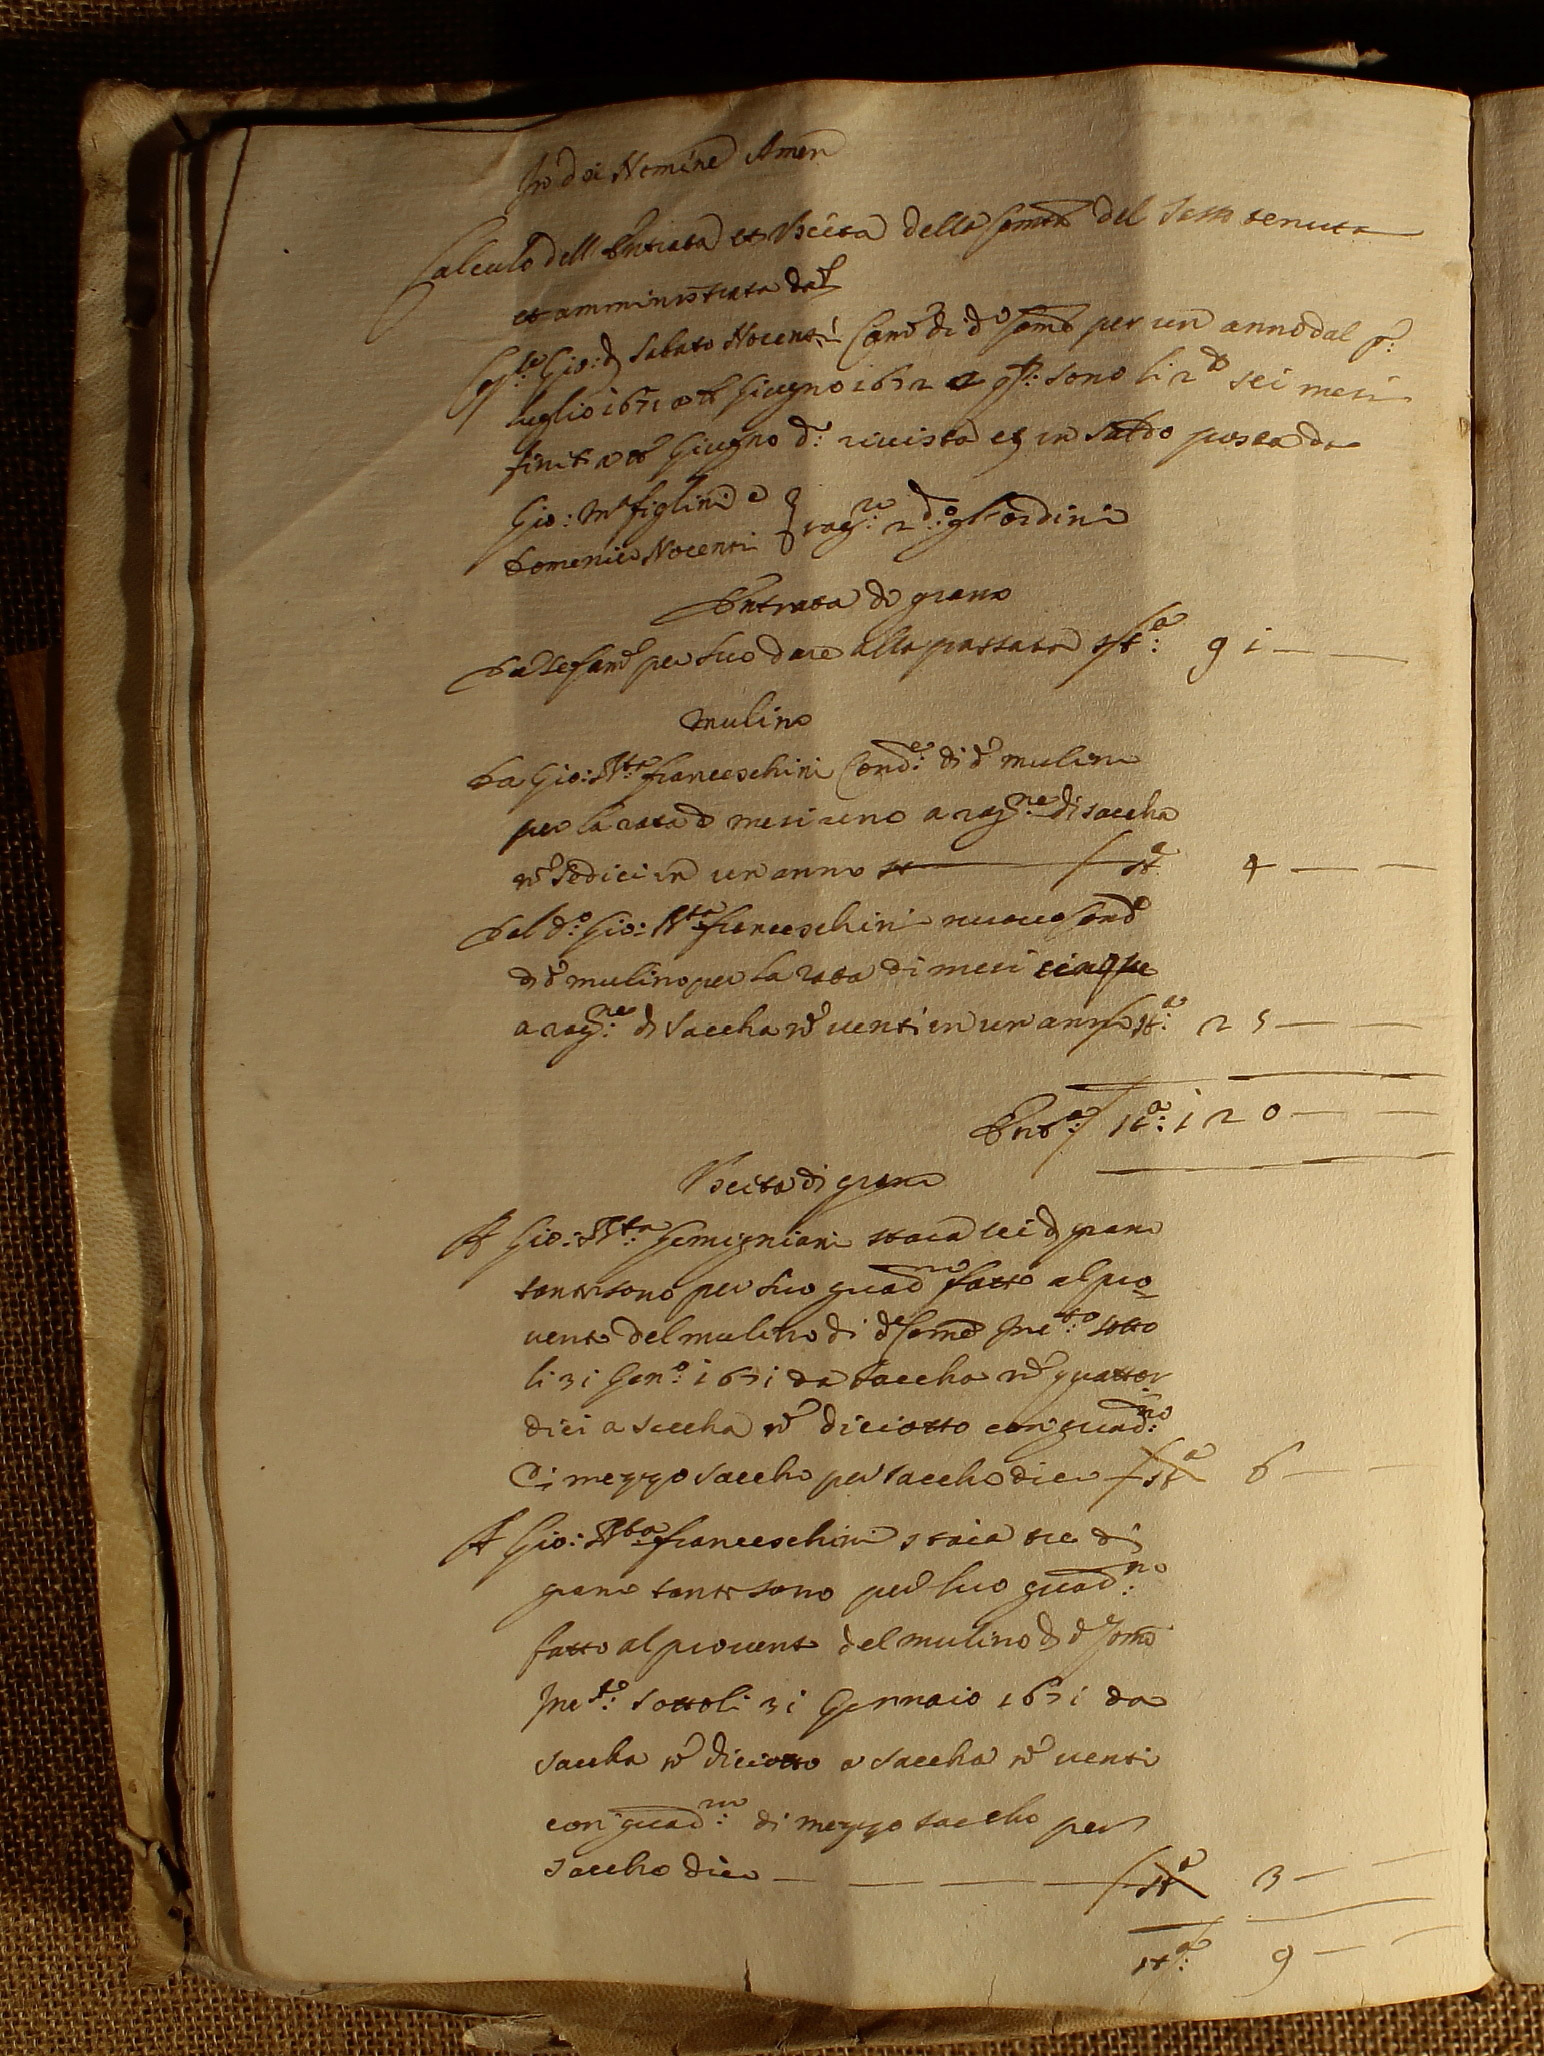 In dei Nomine Amen
Calculo dell Entrata et Uscita della Comtà del Sasso tenuta
et amministrata dal
Gio: di Sabato Nocenti Camo di do Como per un anno dal po:
luglio 1671 a tt Giugno 1672 sono li 2di sei mesi
finiti a tt Giugno do: rivista et in saldo posta da
Gio: Ma figlini e
Domenico Nocenti } rag:ri 2do: gl'ordini
Entrata di grano
Da Camo per suo dare alla passata sta: 91 — —
Mulino
Da Gio: Bta: franceschini Condre: di do mulino
per la rata di mesi uno a ragne: di saccha
no sedici in un anno sta 4 — —
Dal do: Gio: Bta: franceschini nuovo Condo
di do mulino per la rata di mesi cinque
a ragne: di saccha no venti in un anno sta: 25 — —
Entta: sta: 120 — —
Uscita di grano
A Gio: Bta: Gemigniani staia sei di grano
tanti sono per suo guadno fatto al pro-
vento del mulino di da Como Incto: sotto
li 31 Geno: 1671 da saccha no quattor
dici a saccha no diciotto con guadno:
di mezzo saccho per saccho dico sta 6 — —
A Gio: Bta: franceschini staia tre di
grano tanti sono per suo guadno:
fatto al provento del mulino di da Como
Incto: sotto li 31 Gennaio 1671 da
saccha no diciotto a saccha no venti
con guadno: di mezzo saccho per
saccho dico — — — — sta 3 — —
sta: 9 — —